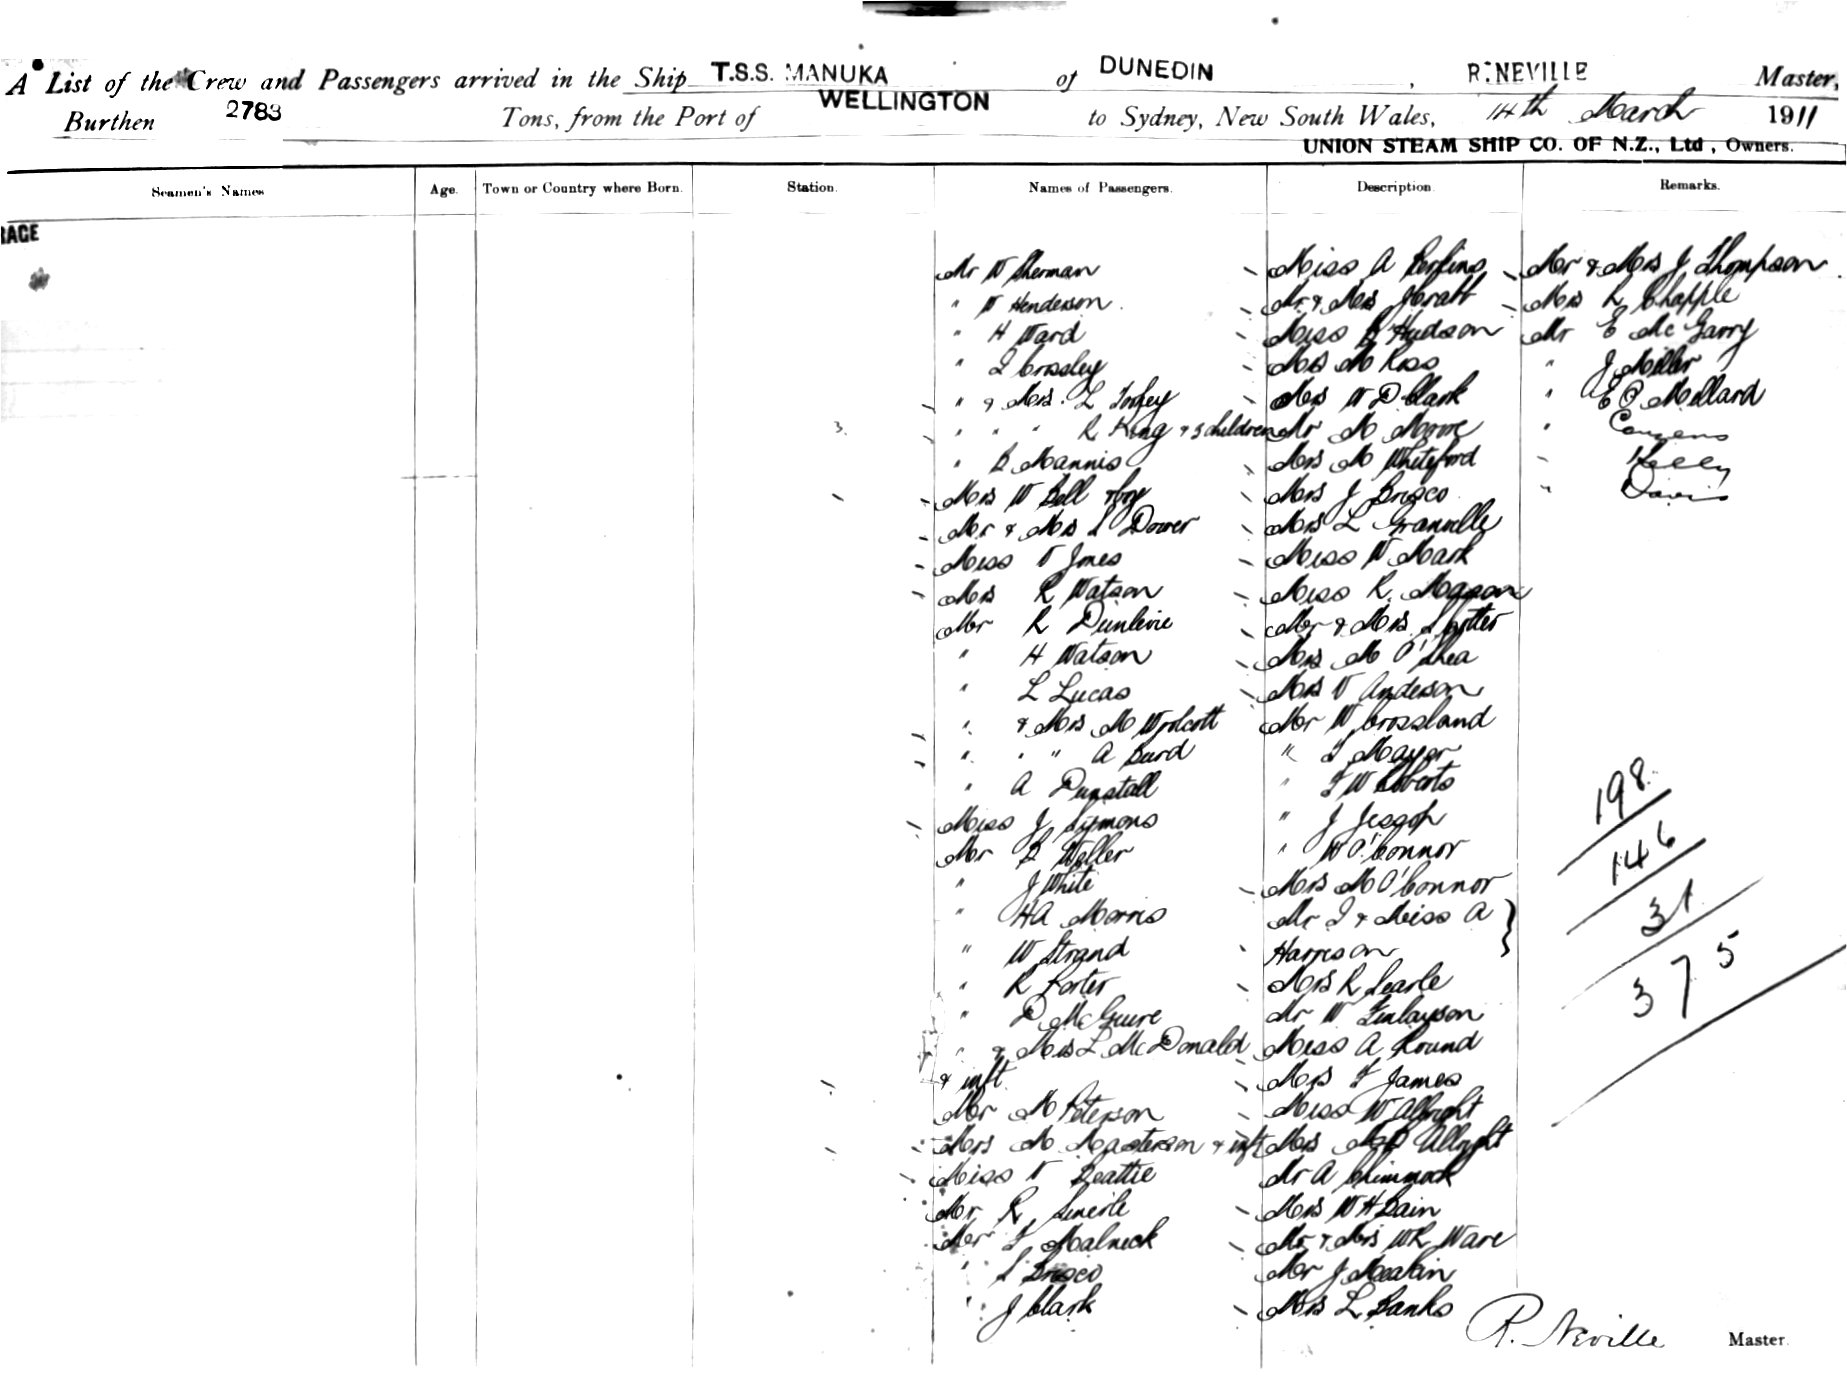 A List of the Crew and Passengers arrived in the Ship T.S.S. MANUKA of DUNEDIN, R. NEVILLE Master,
Burthen 2783 Tons, from the Port of WELLINGTON to Sydney, New South Wales, 14th March 1911
UNION STEAM SHIP CO. OF N.Z., Ltd, Owners.
Seamen's Names Age. Town or Country where Born. Station. Names of Passengers. Description Remarks.
RAGE
Mr W Sherman
" W Henderson
" H Ward
" I Crossley
" & Mrs L
" " " R King & 3 children
" B Mannis
Mrs W Bell & boy
Mr & Mrs S Dower
Miss V Jones
Mrs R Watson
Mr R Dunlevie
" H Watson
" L Lucas
" & Mrs M Wolcott
" " " A Burd
" A Dunstall
Miss J Symons
Mr B Weller
" J White
" HA Morris
" W Strand
" R Porter
" D McGuire
" & Mrs L McDonald
& inft
Mr M Peterson
Mrs M Masterson & inft
Miss V Beattie
Mr R
Mr F Malneck
" S Brisco
" J Clark
Miss A Perkins
Mr & Mrs Pratt
Miss B Hudson
Mrs M Ross
Mrs W D Clark
Mr M Moore
Mrs M Whiteford
Mrs J Brisco
Mrs L Granville
Miss W Mark
Miss R. Mason
Mr & Mrs S Potter
Mrs M O'Shea
Mrs V Anderson
Mr W Crossland
" F Mayer
" F W Roberts
" J Jessop
" W O'Connor
Mrs M O'Connor
Mr I & Miss A
Harrison
Mrs R Searle
Mr W Finlayson
Miss A Round
Mrs F James
Miss W Albright
Mrs Albright
Mr A Chimmock
Mrs W H Bain
Mr & Mrs WR Ware
Mr J Meakin
Mrs L Banks
Mr & Mrs J Thompson
Mrs L Chapple
Mr E McGarry
" J Miller
" E O Mellard
" Couzens
" Kelly
" Davis
3.
198
146
31
375
R. Neville Master.